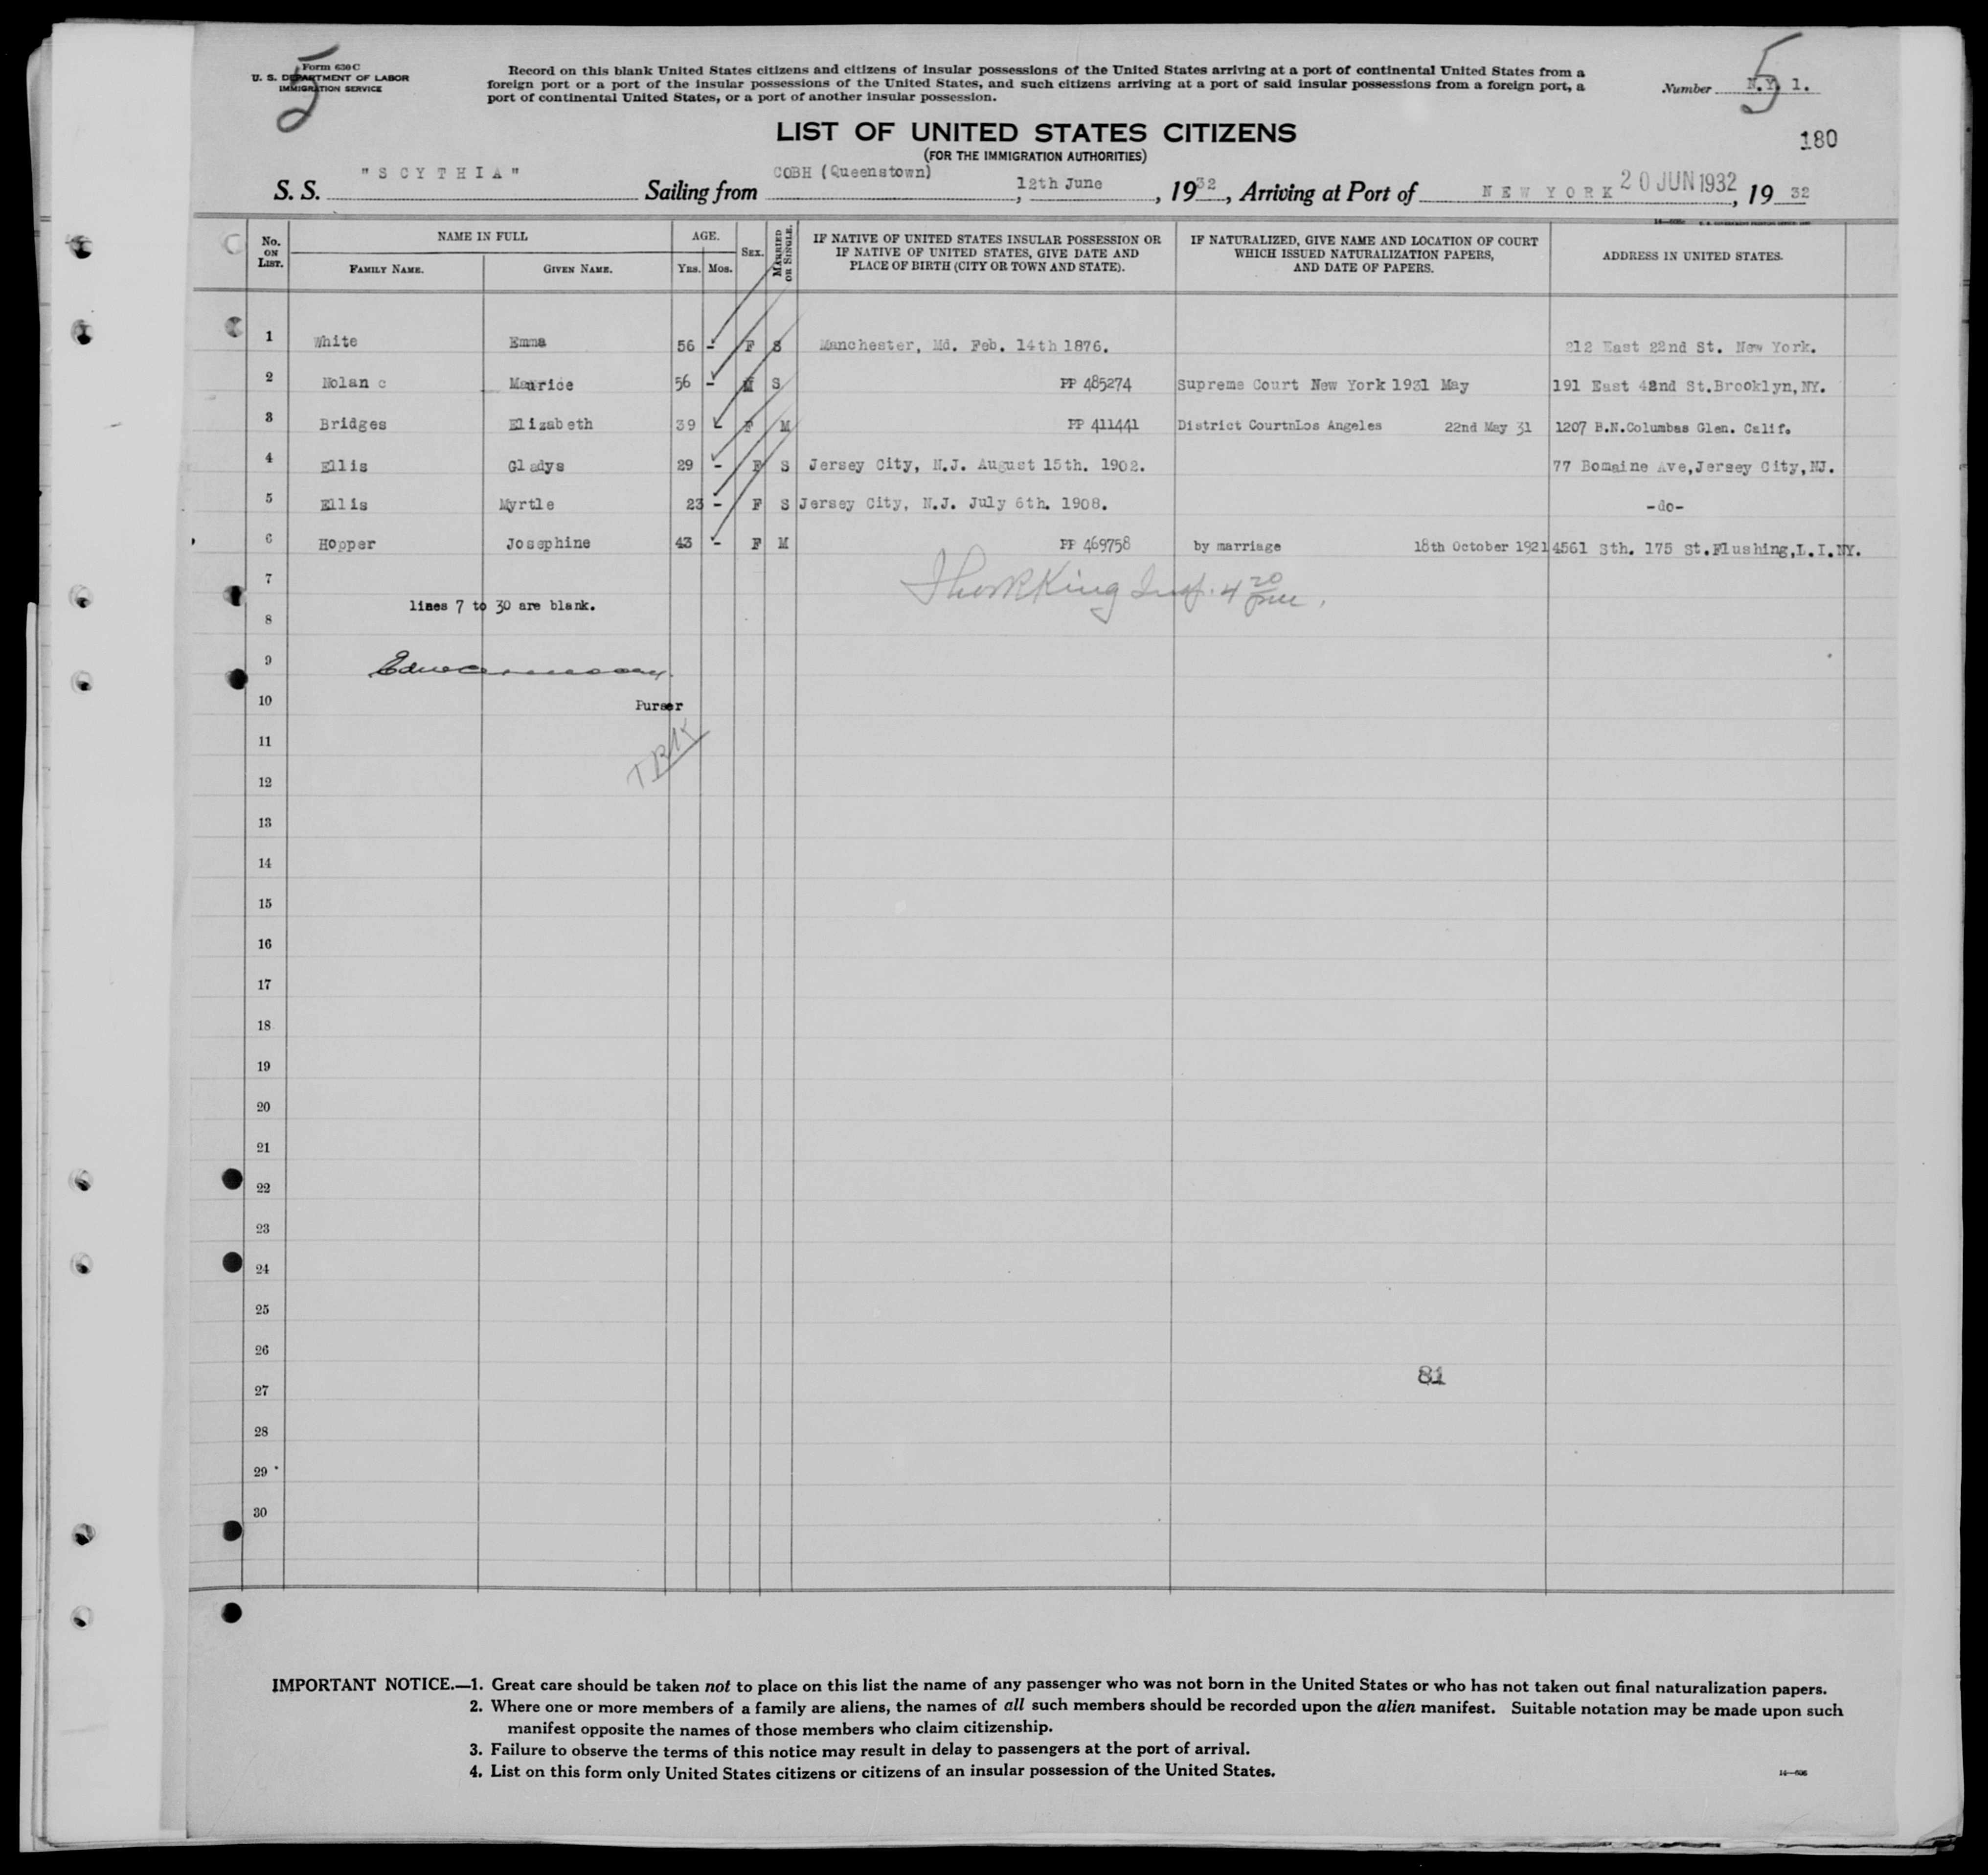 5
Form 630 C
U. S. DEPARTMENT OF LABOR
IMMIGRATION SERVICE
Record on this blank United States citizens and citizens of insular possessions of the United States arriving at a port of continental United States from a
foreign port or a port of the insular possessions of the United States, and such citizens arriving at a port of said insular possessions from a foreign port, a
port of continental United States, or a port of another insular possession.
Number N.Y. 1.
5
180
LIST OF UNITED STATES CITIZENS
(FOR THE IMMIGRATION AUTHORITIES)
S. S. "SCYTHIA" Sailing from COBH (Queenstown), 12th June, 1932, Arriving at Port of NEW YORK 20 JUN 1932, 1932
No. ON LIST. NAME IN FULL FAMILY NAME. GIVEN NAME. AGE. YRS. MOS. SEX. MARRIED OR SINGLE. IF NATIVE OF UNITED STATES INSULAR POSSESSION OR IF NATIVE OF UNITED STATES, GIVE DATE AND PLACE OF BIRTH (CITY OR TOWN AND STATE). IF NATURALIZED, GIVE NAME AND LOCATION OF COURT WHICH ISSUED NATURALIZATION PAPERS, AND DATE OF PAPERS. ADDRESS IN UNITED STATES.
1 White Emma 56 - F S Manchester, Md. Feb. 14th 1876. 212 East 22nd St. New York.
2 Nolan c Maurice 56 - M S PP 485274 Supreme Court New York 1931 May 191 East 42nd St.Brooklyn,NY.
3 Bridges Elizabeth 39 - F M PP 411441 District CourtnLos Angeles 22nd May 31 1207 B.N.Columbas Glen. Calif.
4 Ellis Gladys 29 - F S Jersey City, N.J. August 15th. 1902. 77 Bomaine Ave,Jersey City,NJ.
5 Ellis Myrtle 23 - F S Jersey City, N.J. July 6th. 1908. -do-
6 Hopper Josephine 43 - F M PP 469758 by marriage 18th October 1921 4561 Sth. 175 St.Flushing,L.I.NY.
7
lines 7 to 30 are blank.
King Insp. 4 20 pm.
8
9
10
Purser
TRK
11
12
13
14
15
16
17
18
19
20
21
22
23
24
25
26
81
27
28
29
30
IMPORTANT NOTICE.—1. Great care should be taken not to place on this list the name of any passenger who was not born in the United States or who has not taken out final naturalization papers.
2. Where one or more members of a family are aliens, the names of all such members should be recorded upon the alien manifest. Suitable notation may be made upon such
manifest opposite the names of those members who claim citizenship.
3. Failure to observe the terms of this notice may result in delay to passengers at the port of arrival.
4. List on this form only United States citizens or citizens of an insular possession of the United States.
14—606